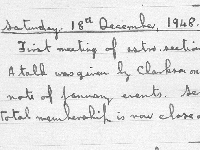 Saturday, 18th December, 1948.
First meeting of astro. section
A talk was given by Clarkson on
note of January events. Se
Total membership is now close o